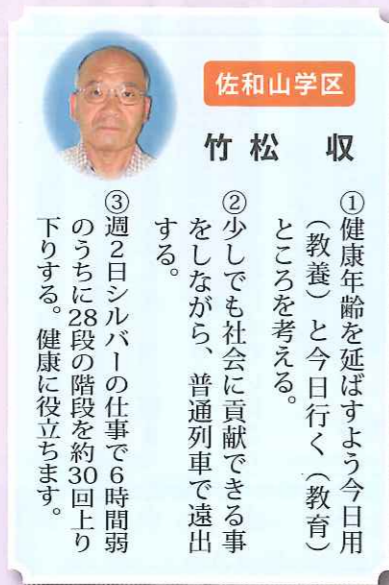 佐和山学区
竹松　収
①健康年齢を延ばすよう今日用
（教養）と今日行く（教育）
ところを考える。
②少しでも社会に貢献できる事
をしながら、普通列車で遠出
する。
③週2日シルバーの仕事で6時間弱
のうちに28段の階段を約30回上り
下りする。健康に役立ちます。